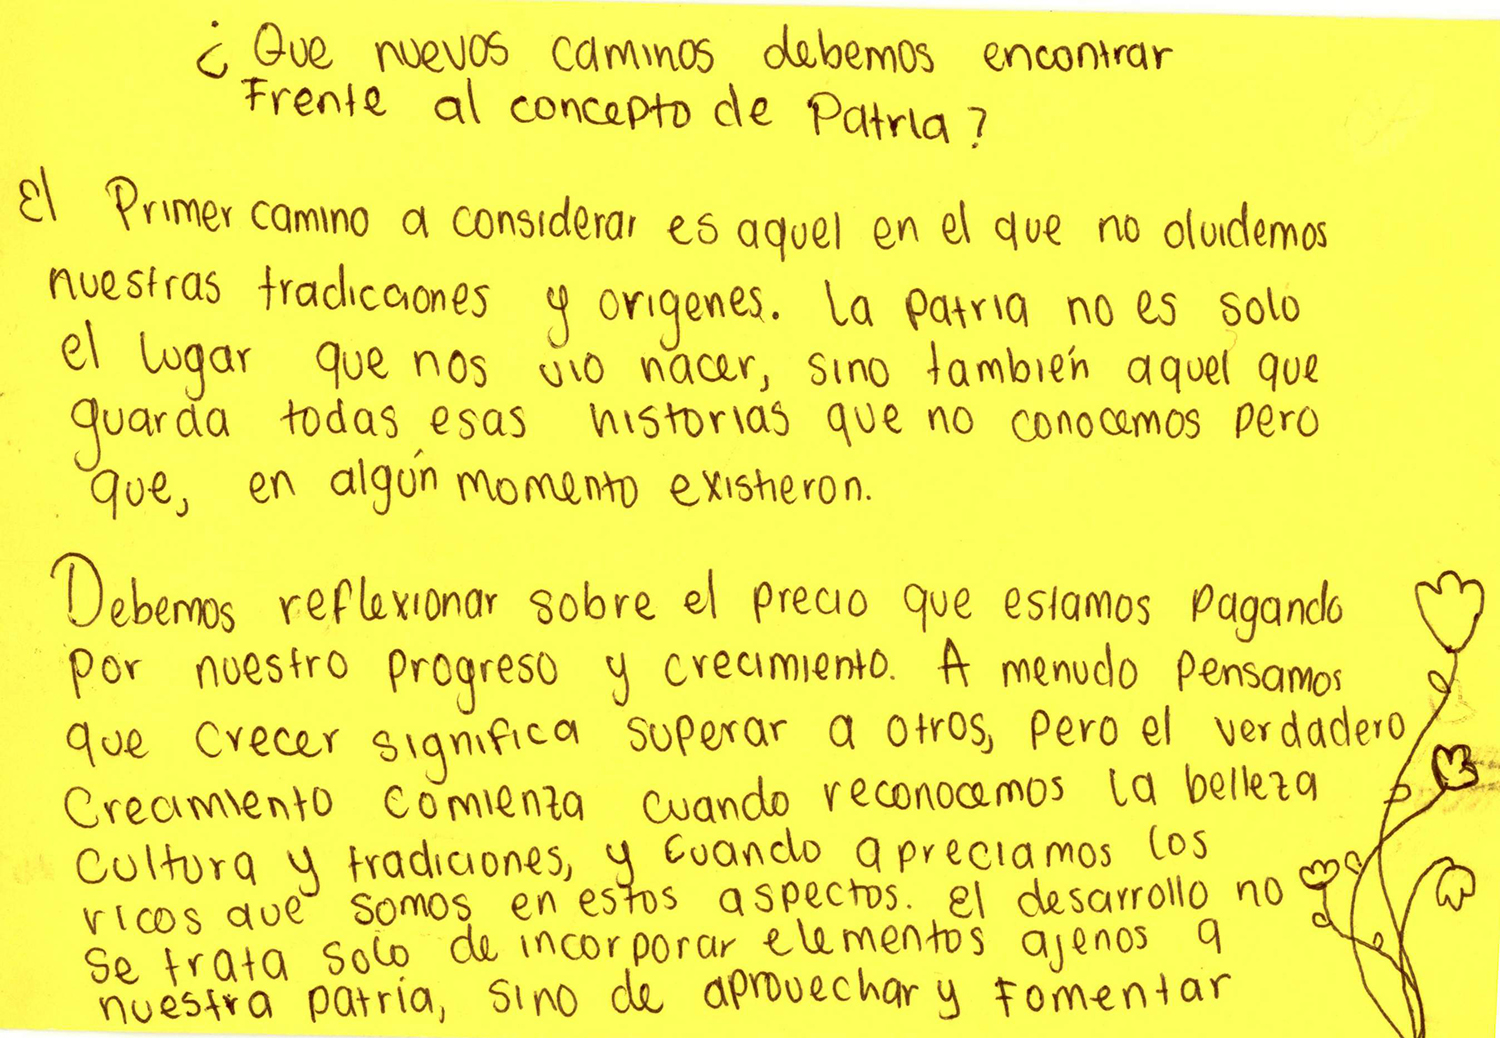 ¿ Que nuevos caminos debemos encontrar
Frente al concepto de Patria?
El Primer camino a considerar es aquel en el que no olvidemos
nuestras tradicciones y origenes. La patria no es solo
el lugar que nos vio nacer, sino también aquel que
guarda todas esas historias que no conocemos pero
que, en algún momento existieron.
Debemos reflexionar sobre el precio que estamos pagando
por nuestro progreso y crecimiento. A menudo pensamos
que crecer significa superar a otros, pero el verdadero
Crecimiento comienza cuando reconocemos la belleza
cultura y tradiciones, y cuando apreciamos los
ricos que somos en estos aspectos. El desarrollo no
se trata solo de incorporar elementos ajenos a
nuestra patria, sino de aprovechar y Fomentar